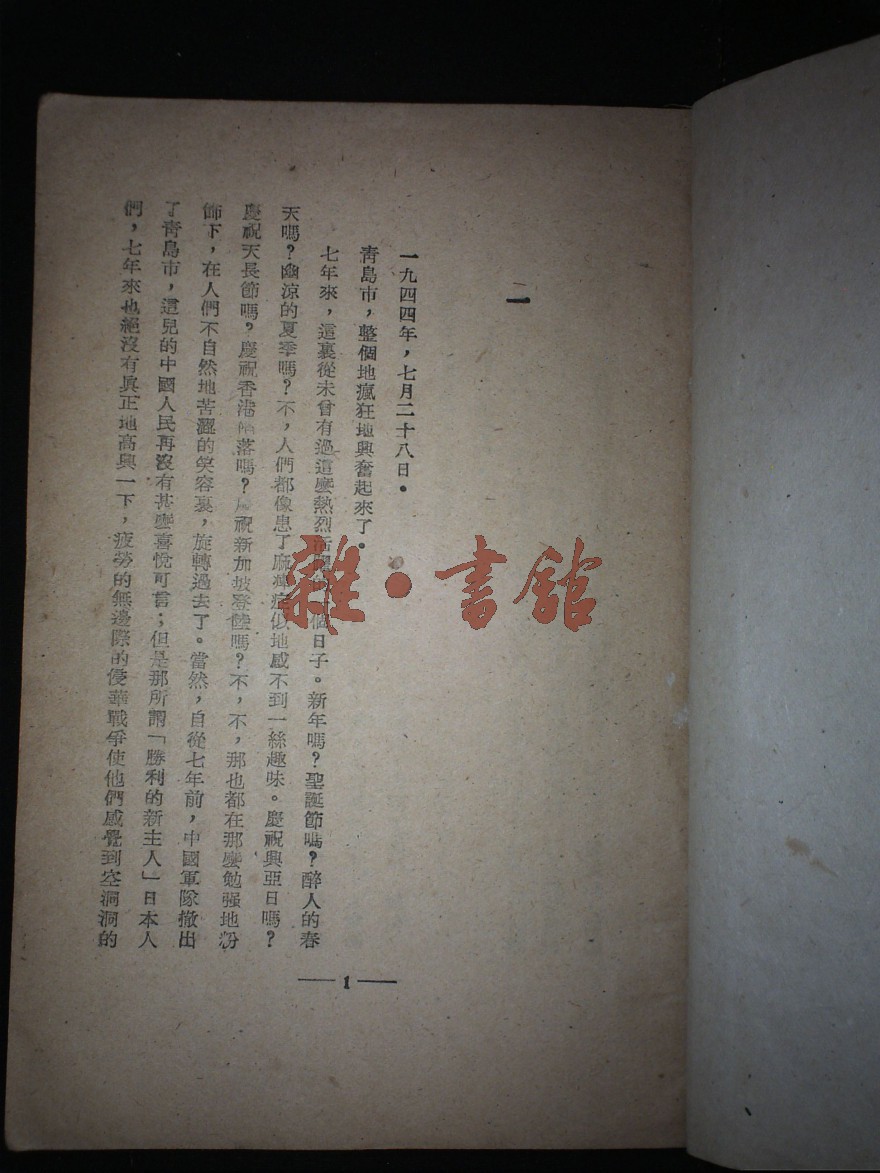 一
一九四四年，七月二十八日。
青島市，整個地瘋狂地興奮起來了。
七年來，這裏從未曾有過這麼熱烈活個日子。新年嗎？聖誕節嗎？醉人的春
天嗎？幽涼的夏季嗎？不，人們都像患了麻痺症似地感不到一絲趣味。慶祝興亞日嗎？
慶祝天長節嗎？慶祝香港陷落嗎？慶祝新加坡登陸嗎？不，不，那也都在那麼勉强地粉
飾下，在人們不自然地苦澀的笑容裏，旋轉過去了。當然，自從七年前，中國軍隊撤出
了青島市，這兒的中國人民再沒有甚麼喜悅可言；但是那所謂「勝利的新主人」日本人
們，七年來也絕沒有眞正地高興一下，疲勞的無邊際的侵華戰爭使他們感覺到空洞洞的
— 1 —
雜·書館